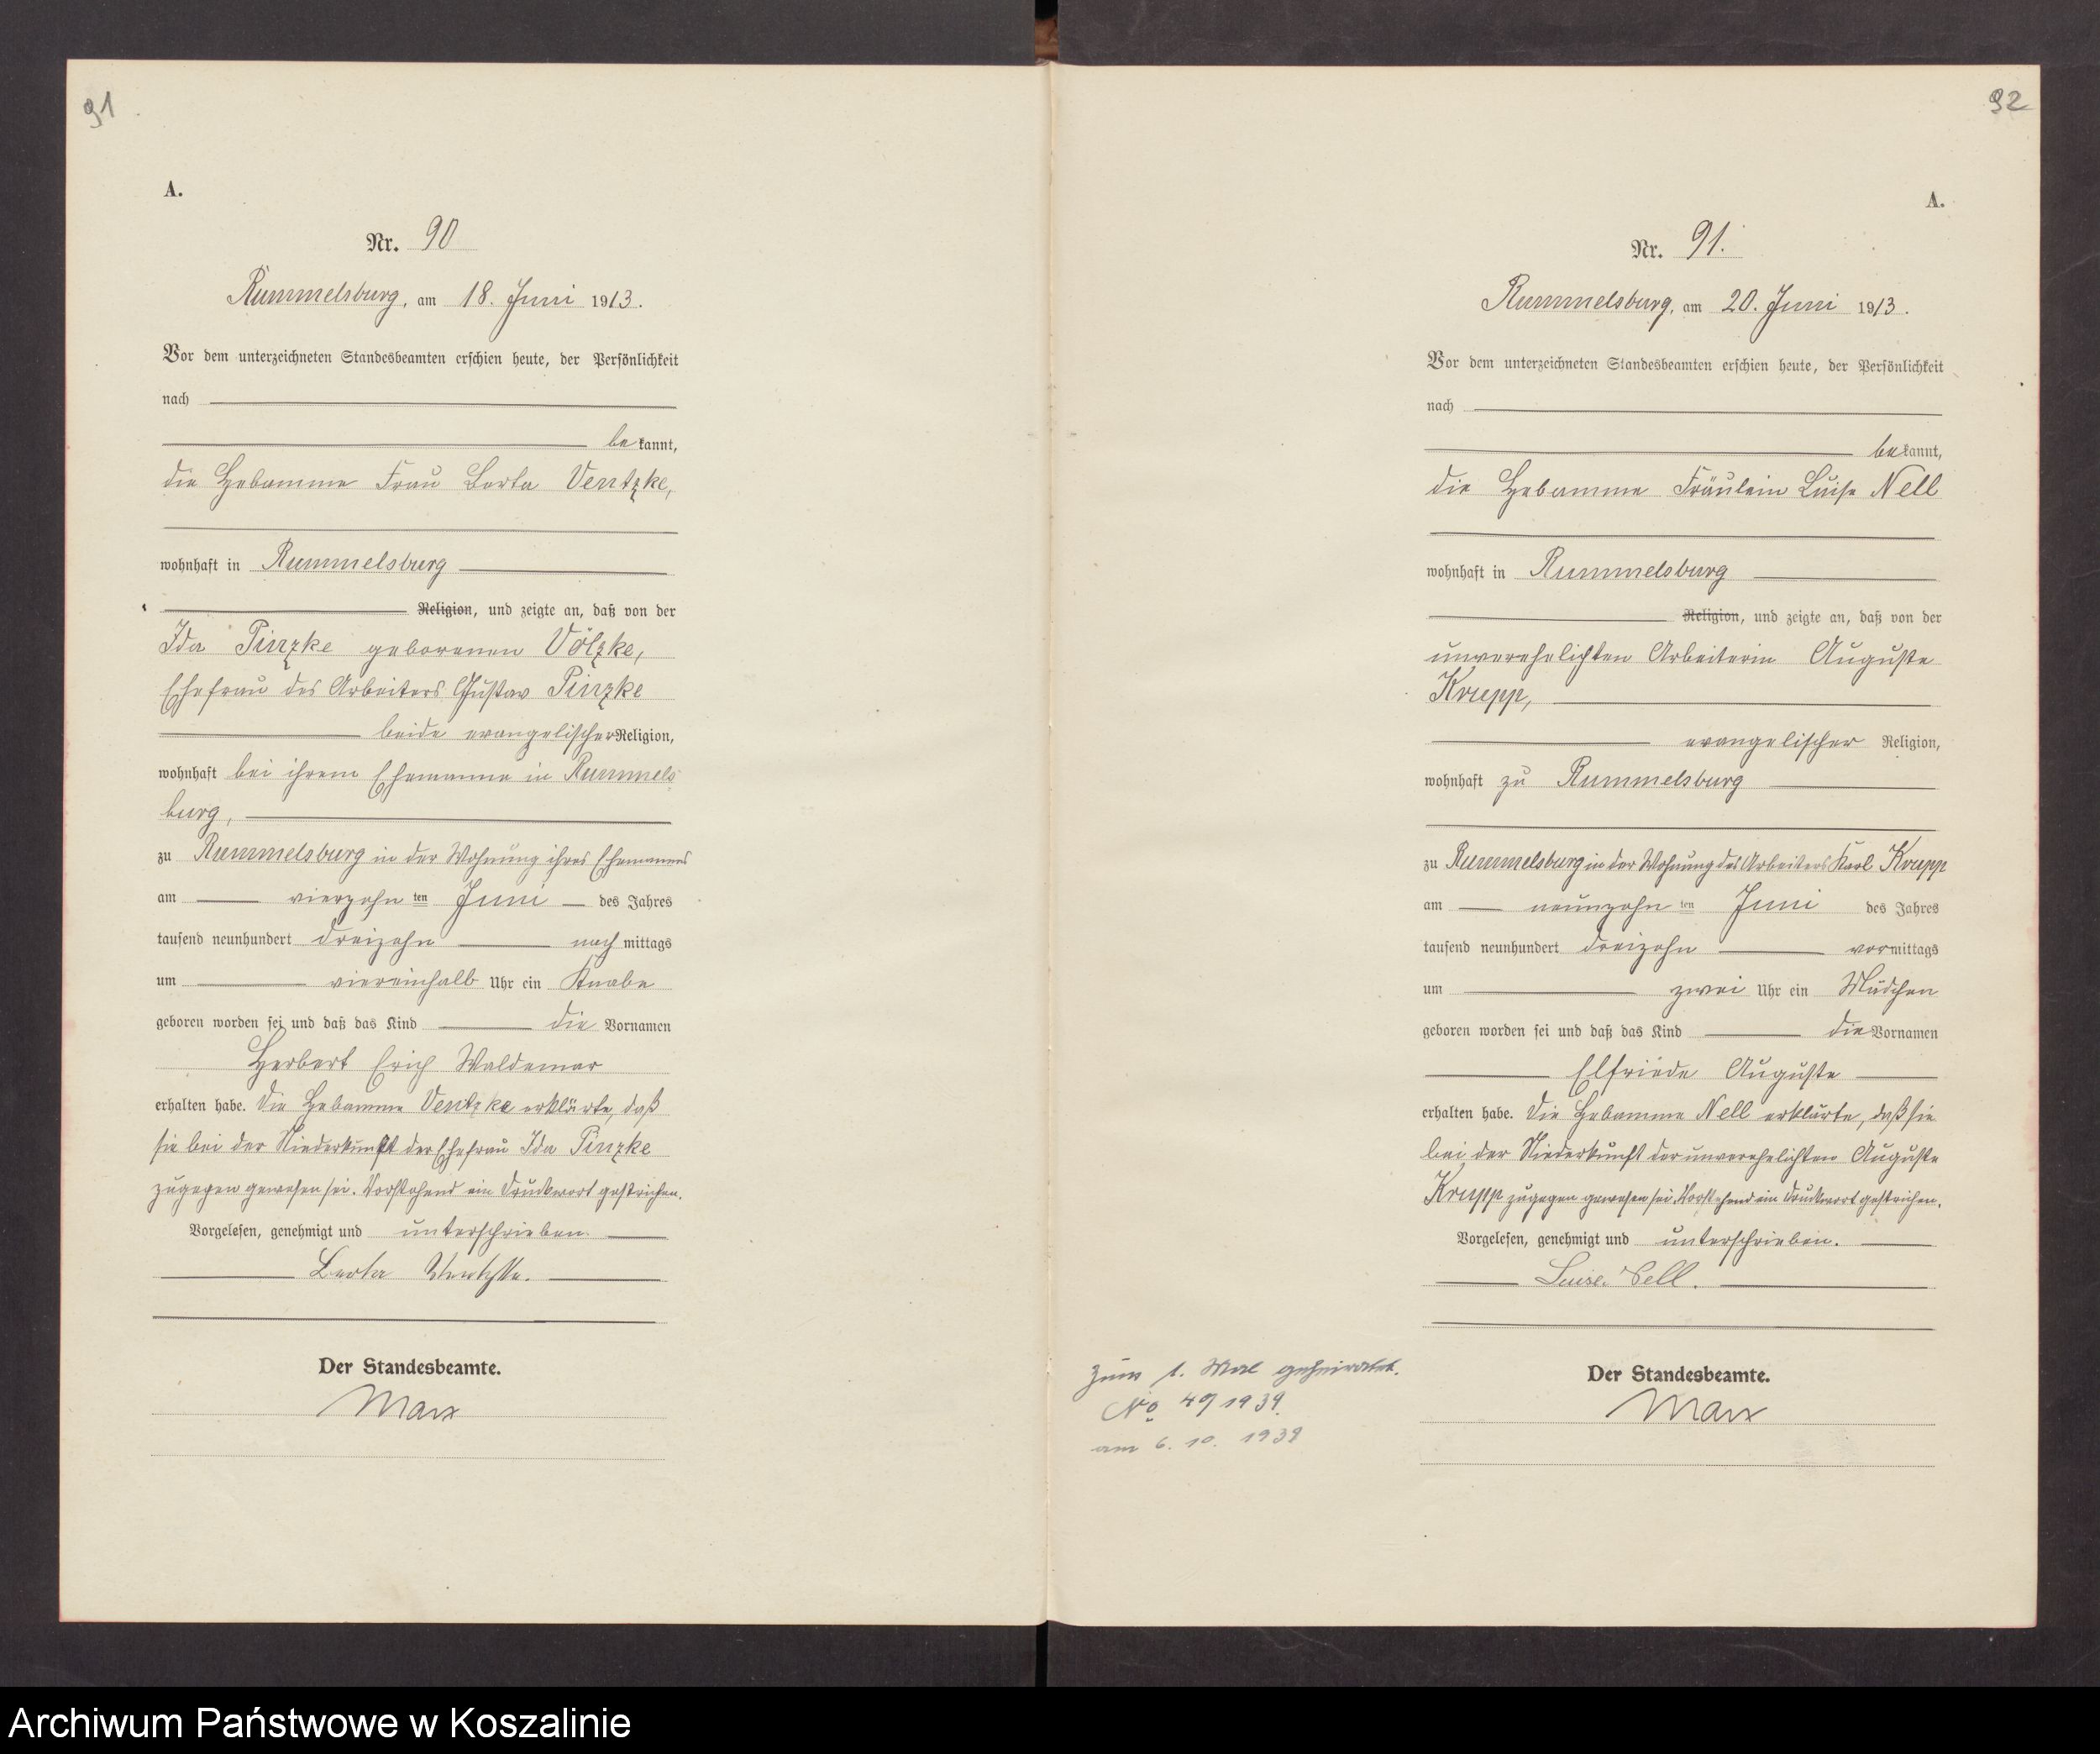 91
A.
Nr. 90
Rummelsburg, am 18. Juni 1913.
Vor dem unterzeichneten Standesbeamten erschien heute, der Persönlichkeit
nach
bekannt,
die Hebamme Frau Berta Ventzke,
wohnhaft in Rummelsburg
Religion, und zeigte an, daß von der
Ida Pinzke geborenen Völzke,
Ehefrau des Arbeiters Gustav Pinzke
beide evangelischer Religion,
wohnhaft bei ihrem Ehemanne in Rummels
burg,
zu Rummelsburg in der Wohnung ihres Ehemannes
am vierzehn ten Juni des Jahres
tausend neunhundert dreizehn nachmittags
um viereinhalb Uhr ein Knabe
geboren worden sei und daß das Kind die Vornamen
Herbert Erich Waldemar
erhalten habe. Die Hebamme Ventzke erklärte, daß
sie bei der Niederkunft der Ehefrau Ida Pinzke
zugegen gewesen sei. Vorstehend ein Druckwort gestrichen.
Vorgelesen, genehmigt und unterschrieben.
Berta Ventzke.
Der Standesbeamte.
Marx
92
A.
Nr. 91.
Rummelsburg, am 20. Juni 1913.
Vor dem unterzeichneten Standesbeamten erschien heute, der Persönlichkeit
nach
bekannt,
die Hebamme Fräulein Luise Nell
wohnhaft in Rummelsburg
Religion, und zeigte an, daß von der
unverehelichten Arbeiterin Auguste
Krupp,
evangelischer Religion,
wohnhaft zu Rummelsburg
zu Rummelsburg in der Wohnung des Arbeiters Karl Krupp
am neunzehn ten Juni des Jahres
tausend neunhundert dreizehn vormittags
um zwei Uhr ein Mädchen
geboren worden sei und daß das Kind die Vornamen
Elfriede Auguste
erhalten habe. Die Hebamme Nell erklärte, daß sie
bei der Niederkunft der unverehelichten Auguste
Krupp zugegen gewesen sei. Vorstehend ein Druckwort gestrichen.
Vorgelesen, genehmigt und unterschrieben.
Luise Nell.
Der Standesbeamte.
Marx
zum 1. Mal geheiratet.
No 49/1939.
am 6. 10. 1939
Archiwum Państwowe w Koszalinie